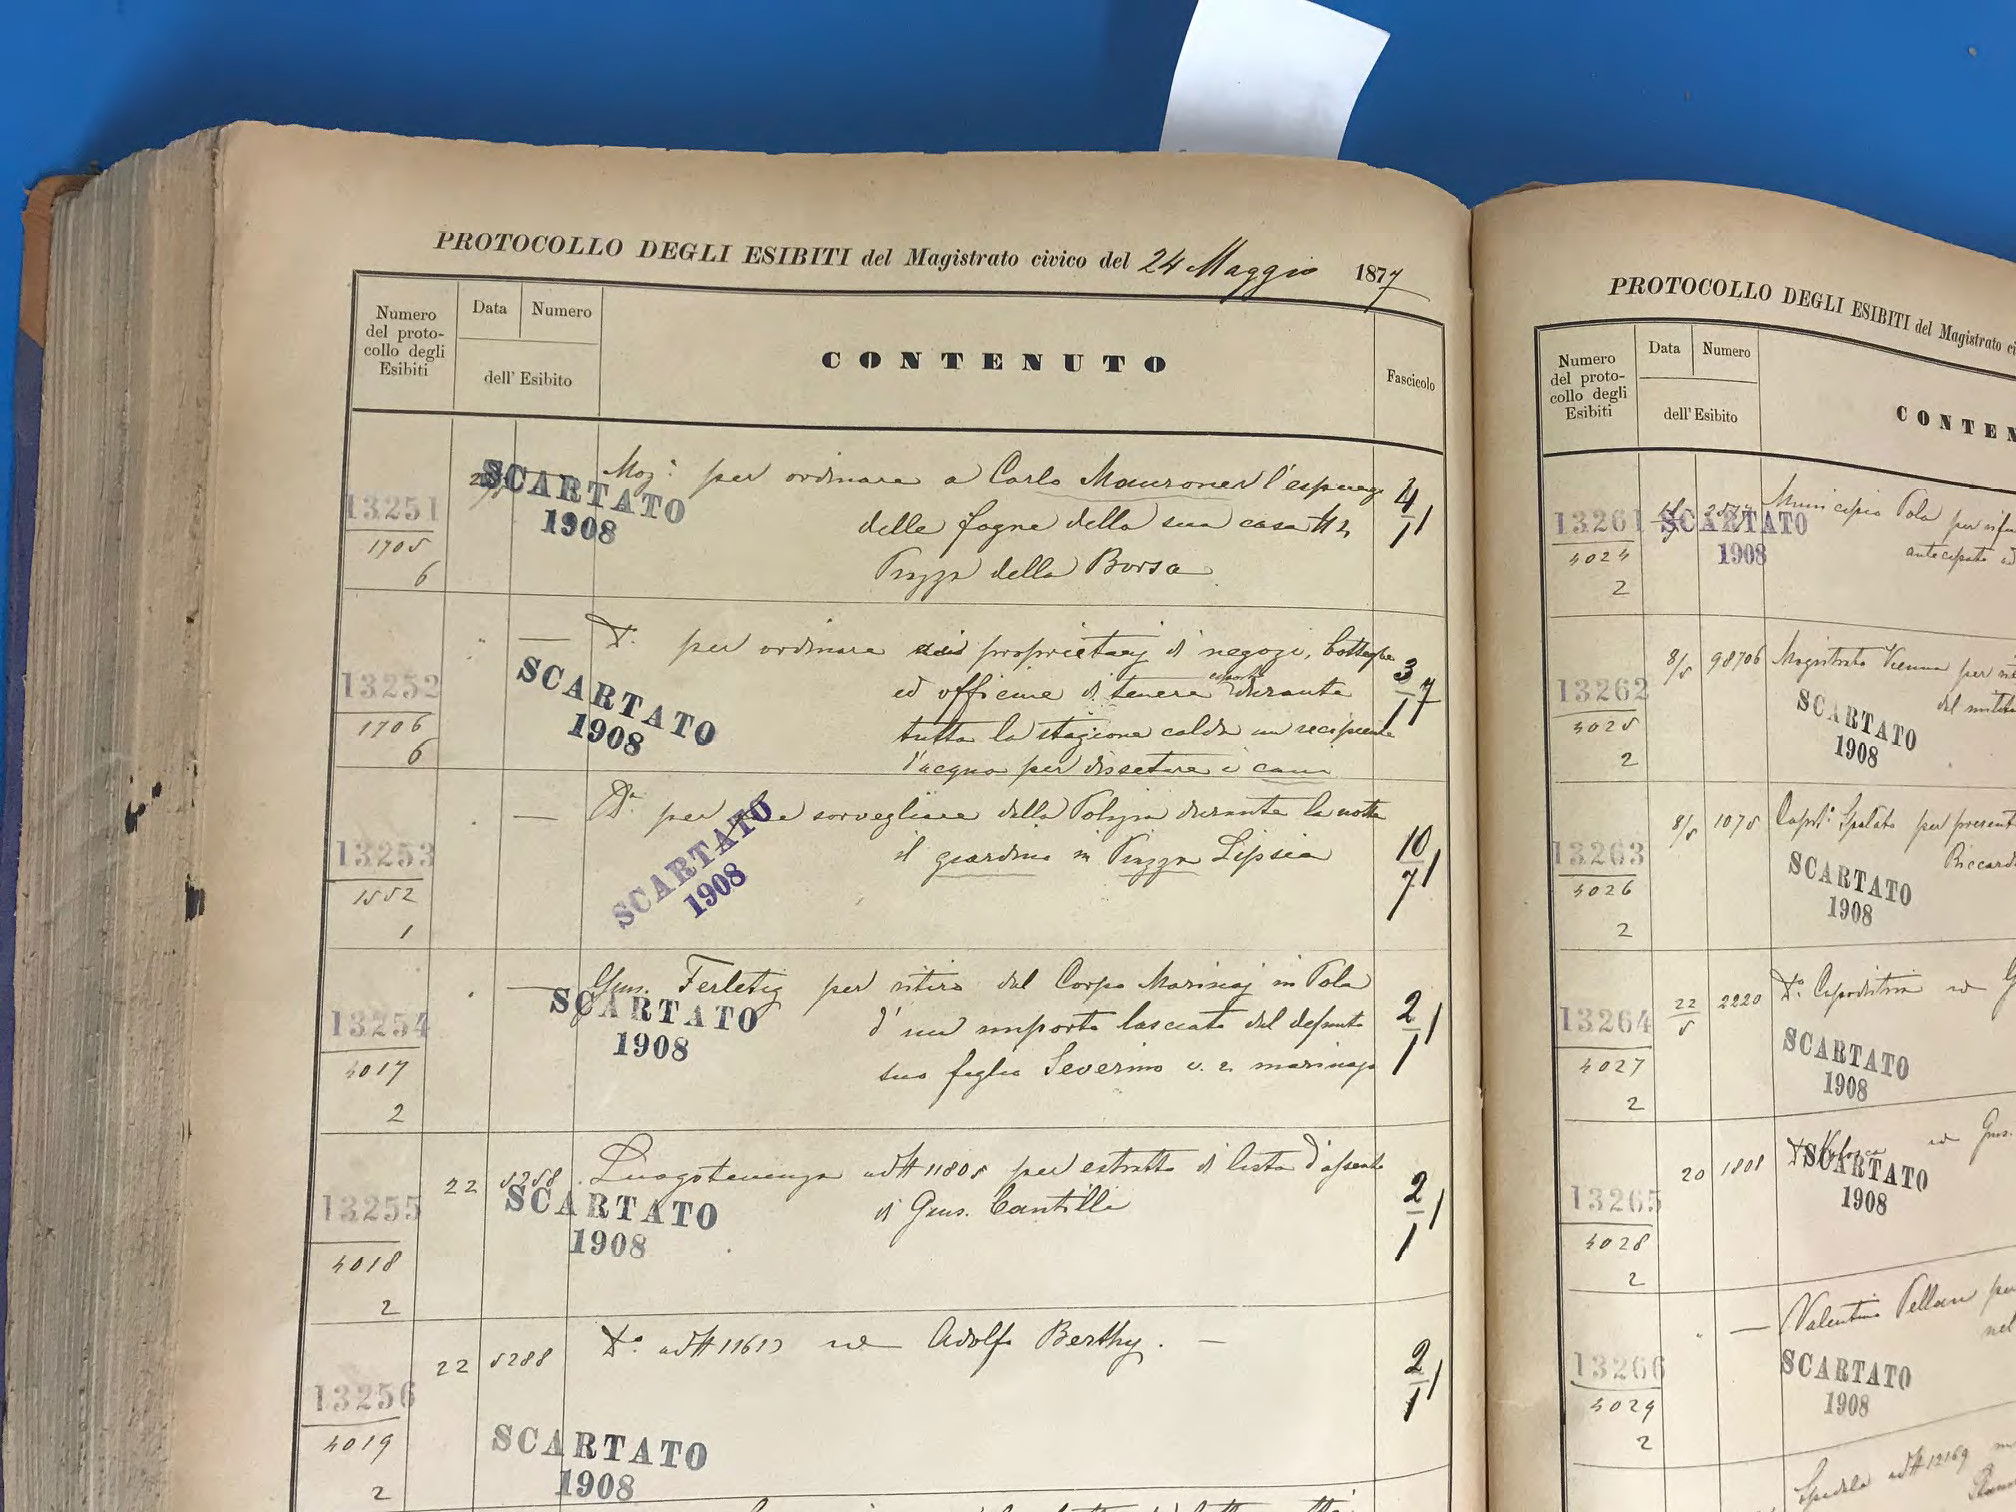 PROTOCOLLO DEGLI ESIBITI del Magistrato civico del 24 Maggio 1877
Numero del protocollo degli Esibiti
Data
Numero
dell' Esibito
CONTENUTO
Fascicolo
13251
1705
6
SCARTATO
1908
per ordinare a Carlo Mauroner l'espurgo
delle fogne della sua casa N 2
Piazza della Borsa
4/1 1
13252
1706
6
—
SCARTATO
1908
per ordinare proprietarj di negozi, botteghe
ed officine di tenere esposto durante
tutta la stagione calda un recipiente
d'acqua per dissetare i cani
3/1 7
13253
1552
1
—
SCARTATO
1908
per sorvegliare dalla Polizia durante la notte
il giardino in Piazza Lipsia
10/7 1
13254
4017
2
—
SCARTATO
1908
Gius. Ferletig per ritiro dal Corpo Marinaj in Pola
d'un importo lasciato dal defunto
suo figlio Severino marinajo
2/1 1
13255
4018
2
22
5258
SCARTATO
1908
Luogotenenza ad N 11805 per estratto di lista d'assento
di Gius. Cantilli
2/1 1
13256
4019
2
22
5288
SCARTATO
1908
Do ad N Adolfo Berthy. —
2/1 1
PROTOCOLLO DEGLI ESIBITI del Magistrato ci
Numero del protocollo degli Esibiti
Data
Numero
dell' Esibito
CONTEN
13261
4024
2
SCARTATO
1908
Municipio Pola per
antecipato
13262
4025
2
8/5
98706
Magistrato Vienna per
del
SCARTATO
1908
13263
4026
2
8/5
1075
Capit. Spalato per present
Riccard
SCARTATO
1908
13264
4027
2
22/5
2220
Do Capodistria
SCARTATO
1908
13265
4028
2
20
1808
Gius.
SCARTATO
1908
13266
4029
2
—
Valentino Pellan per
nel
SCARTATO
1908
ad N 12169